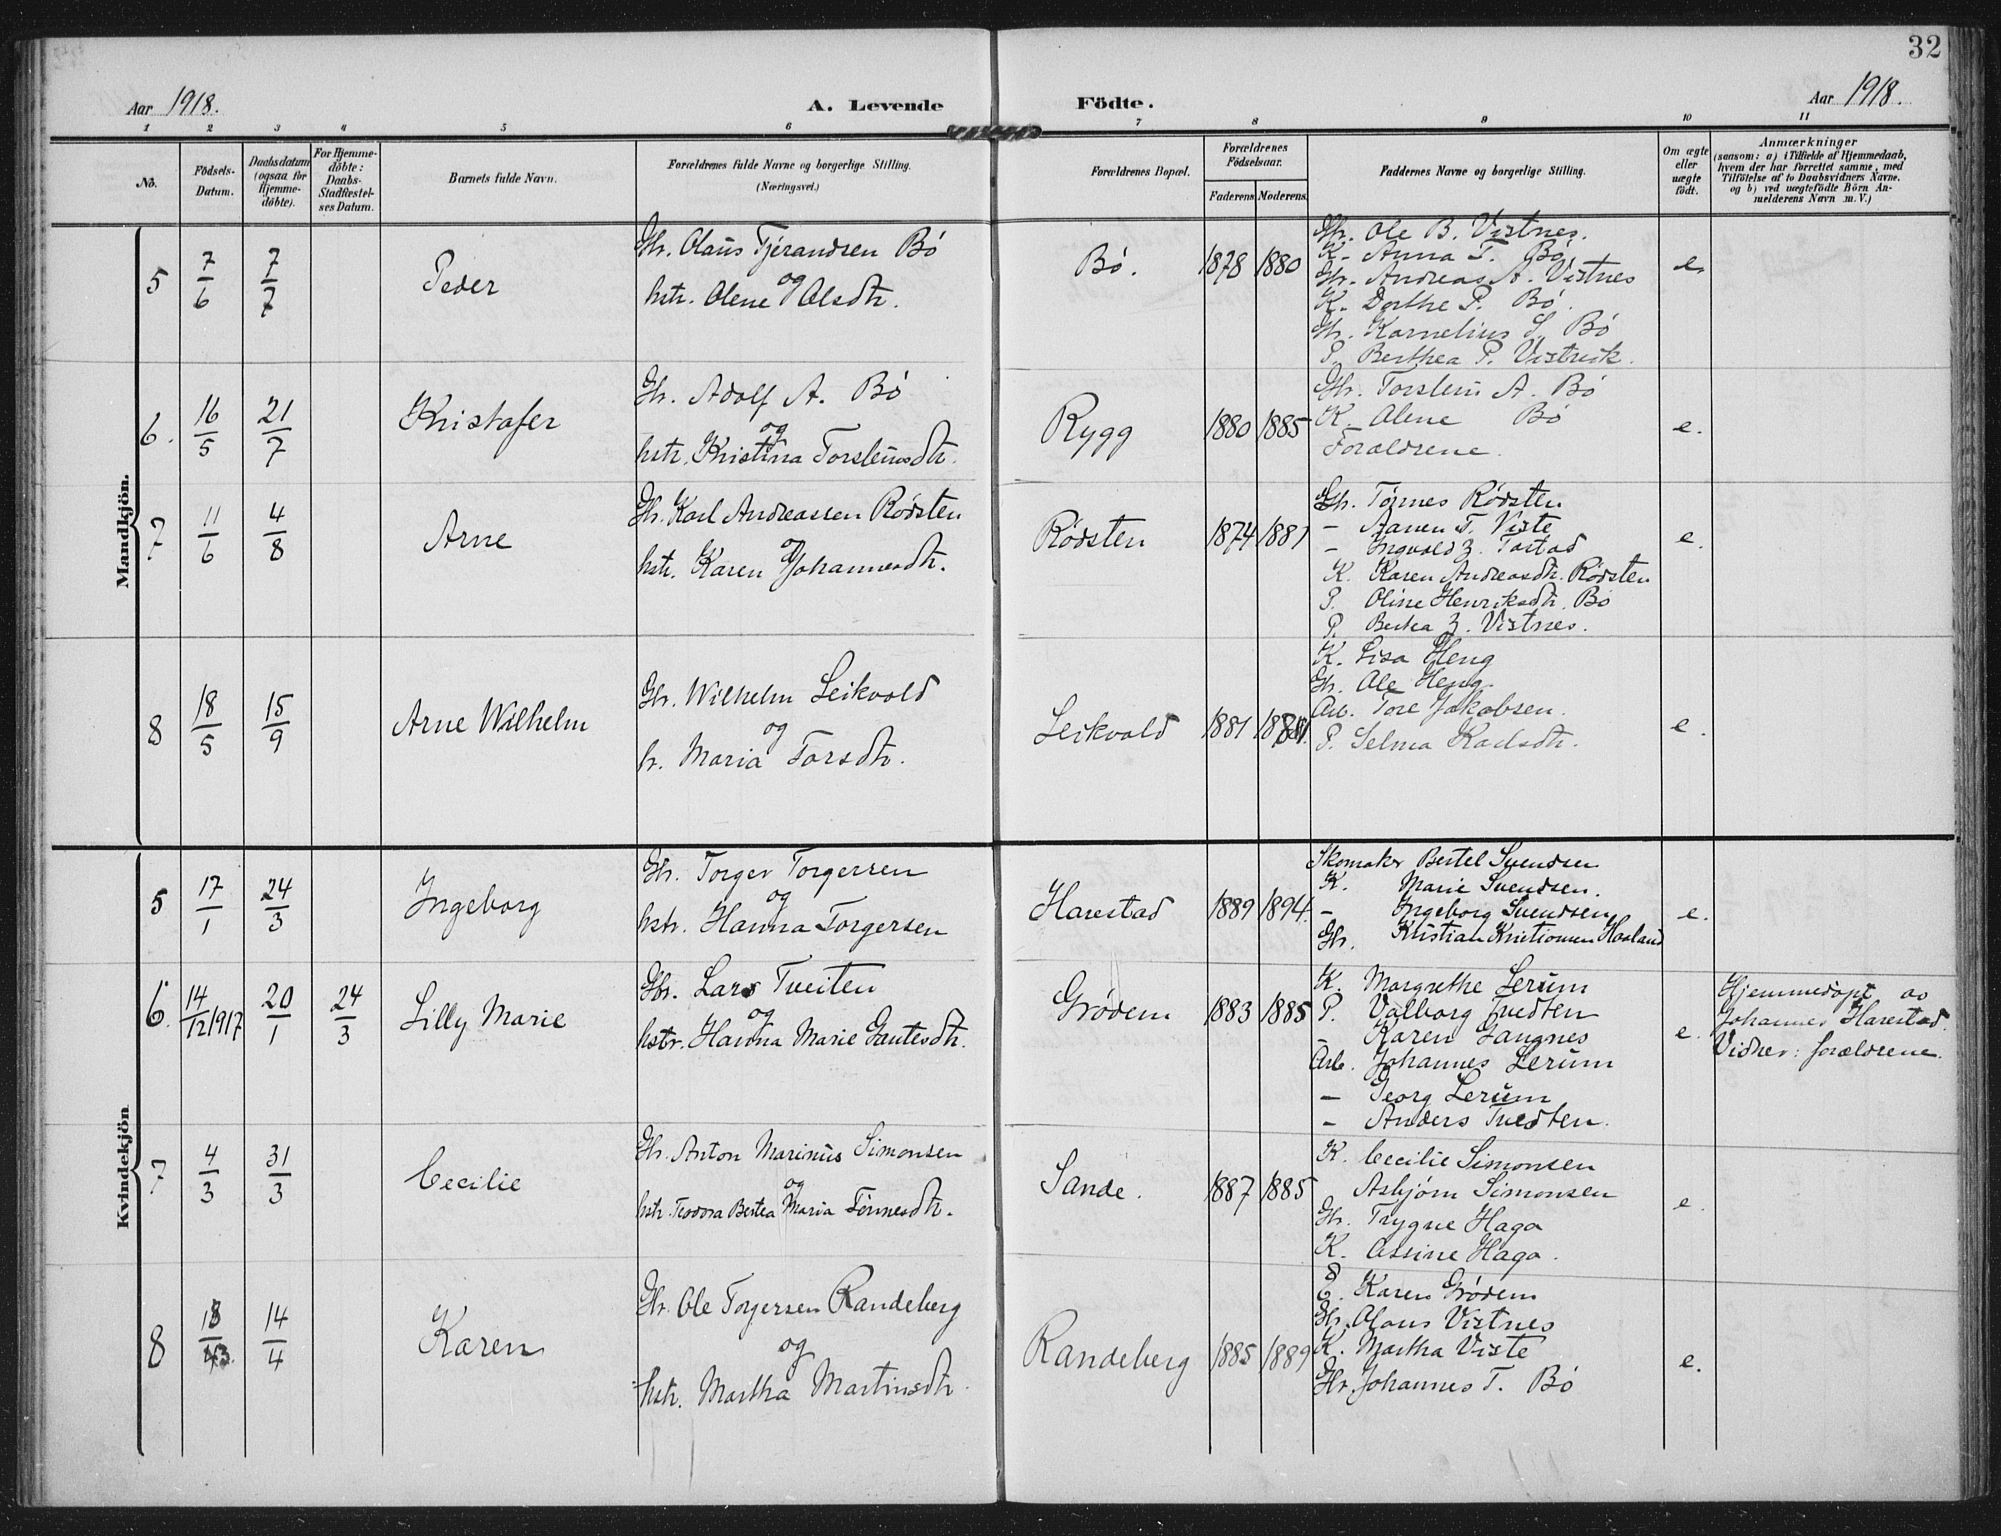 32
Aar 1918.
A. Levende Födte.
Aar 1918.
1 2 3 4 5 6 7 8 9 10 11
No.
Födsels-Datum.
Daabsdatum (ogsaa for Hjemme-döbte).
For Hjemme-döbte: Daabs-Stadfæstel-ses Datum.
Barnets fulde Navn.
Forældrenes fulde Navne og borgerlige Stilling.
(Næringsvei.)
Forældrenes Bopæl.
Forældrenes Födselsaar.
Faderens. Moderens.
Faddernes Navne og borgerlige Stilling.
Om ægte eller uægte födt.
Anmærkninger
(saasom: a) i Tilfælde af Hjemmedaab,
hvem der har forrettet samme, med
Tilföielse af to Daabsvidners Navne,
og b) ved uægtefödte Börn An-
melderens Navn m. V.)
Mandkjön.
5 7/6 7/7 Peder
Gbr. Olaus Tjerandsen Bö
og
hstr. Olene Olsdtr.
Bö. 1878 1880
Gbr. Ole B. Vistnes.
K. Anna T. Bö
Gbr. Andreas A. Vistnes
K. Dorthe P. Bö.
Gbr. Kornelius S. Bö
P. Berthea P. Vistvik.
e.
6. 16/5 21/7 Kristofer
Gbr. Adolf A. Bö
og
hstr. Kristina Torsteinsdtr.
Rygg 1880 1885
Gbr. Torstein A. Bö
K. Olene Bö
Forældrene.
e.
7 11/6 4/8 Arne
Gbr. Karl Andreassen Rödsten
og
hstr. Karen Johannesdtr.
Rödsten 1874 1881
Gbr. Tönnes Rödsten
– Aanen T. Viste
– Ingvald Z. Tastad
K. Karen Andreasdtr. Rödsten
P. Oline Henriksdtr. Bö
P. Bertea Z. Vistnes.
e.
8 18/5 15/9 Arne Wilhelm
Gbr. Wilhelm Leikvold
og
h. Maria Torsdtr.
Leikvold 1881
K. Lisa Heng
Gbr. Ole Heng
Arb. Tore Jakobsen.
P. Selma Karlsdtr.
e.
Kvindekjön
5 17/1 24/3 Ingeborg
Gbr. Torger Torgersen
og
hstr. Hanna Torgersen
Harestad 1889 1894.
Skomaker Bertel Svendsen
K. Marie Svendsen.
– Ingeborg Svendsen
Gbr. Kristian Kristiansen Haaland
e.
6. 14/12 1917 20/1 24/3 Lilly Marie
Gbr. Lars Tveiten
og
hstr. Hanna Marie Gautesdtr.
Grödem 1883 1885
K. Margrethe Lerum
P. Valborg Tvedten
– Karen Langnes
Arb. Johannes Lerum
– Georg Lerum
– Anders Tvedten.
e.
Hjemmedöpt av
Johannes Harestad.
Vidner: forældrene.
7 4/3 31/3 Cecilie
Gbr. Anton Marinus Simonsen
og
hstr. Teodora Bertea Maria Tönnesdtr.
Sande. 1887 1885
K. Cecilie Simonsen
Asbjörn Simonsen
Gbr. Trygve Haga
K. Assine Haga.
e.
8 18/3. 14/4 Karen
Gbr. Ole Torgersen Randeberg
og
hstr. Martha Martinsdtr.
Randeberg 1885 1889
P. Karen Grödem
Gbr. Olaus Vistnes
K. Martha Viste
Gbr. Johannes T. Bö
e.